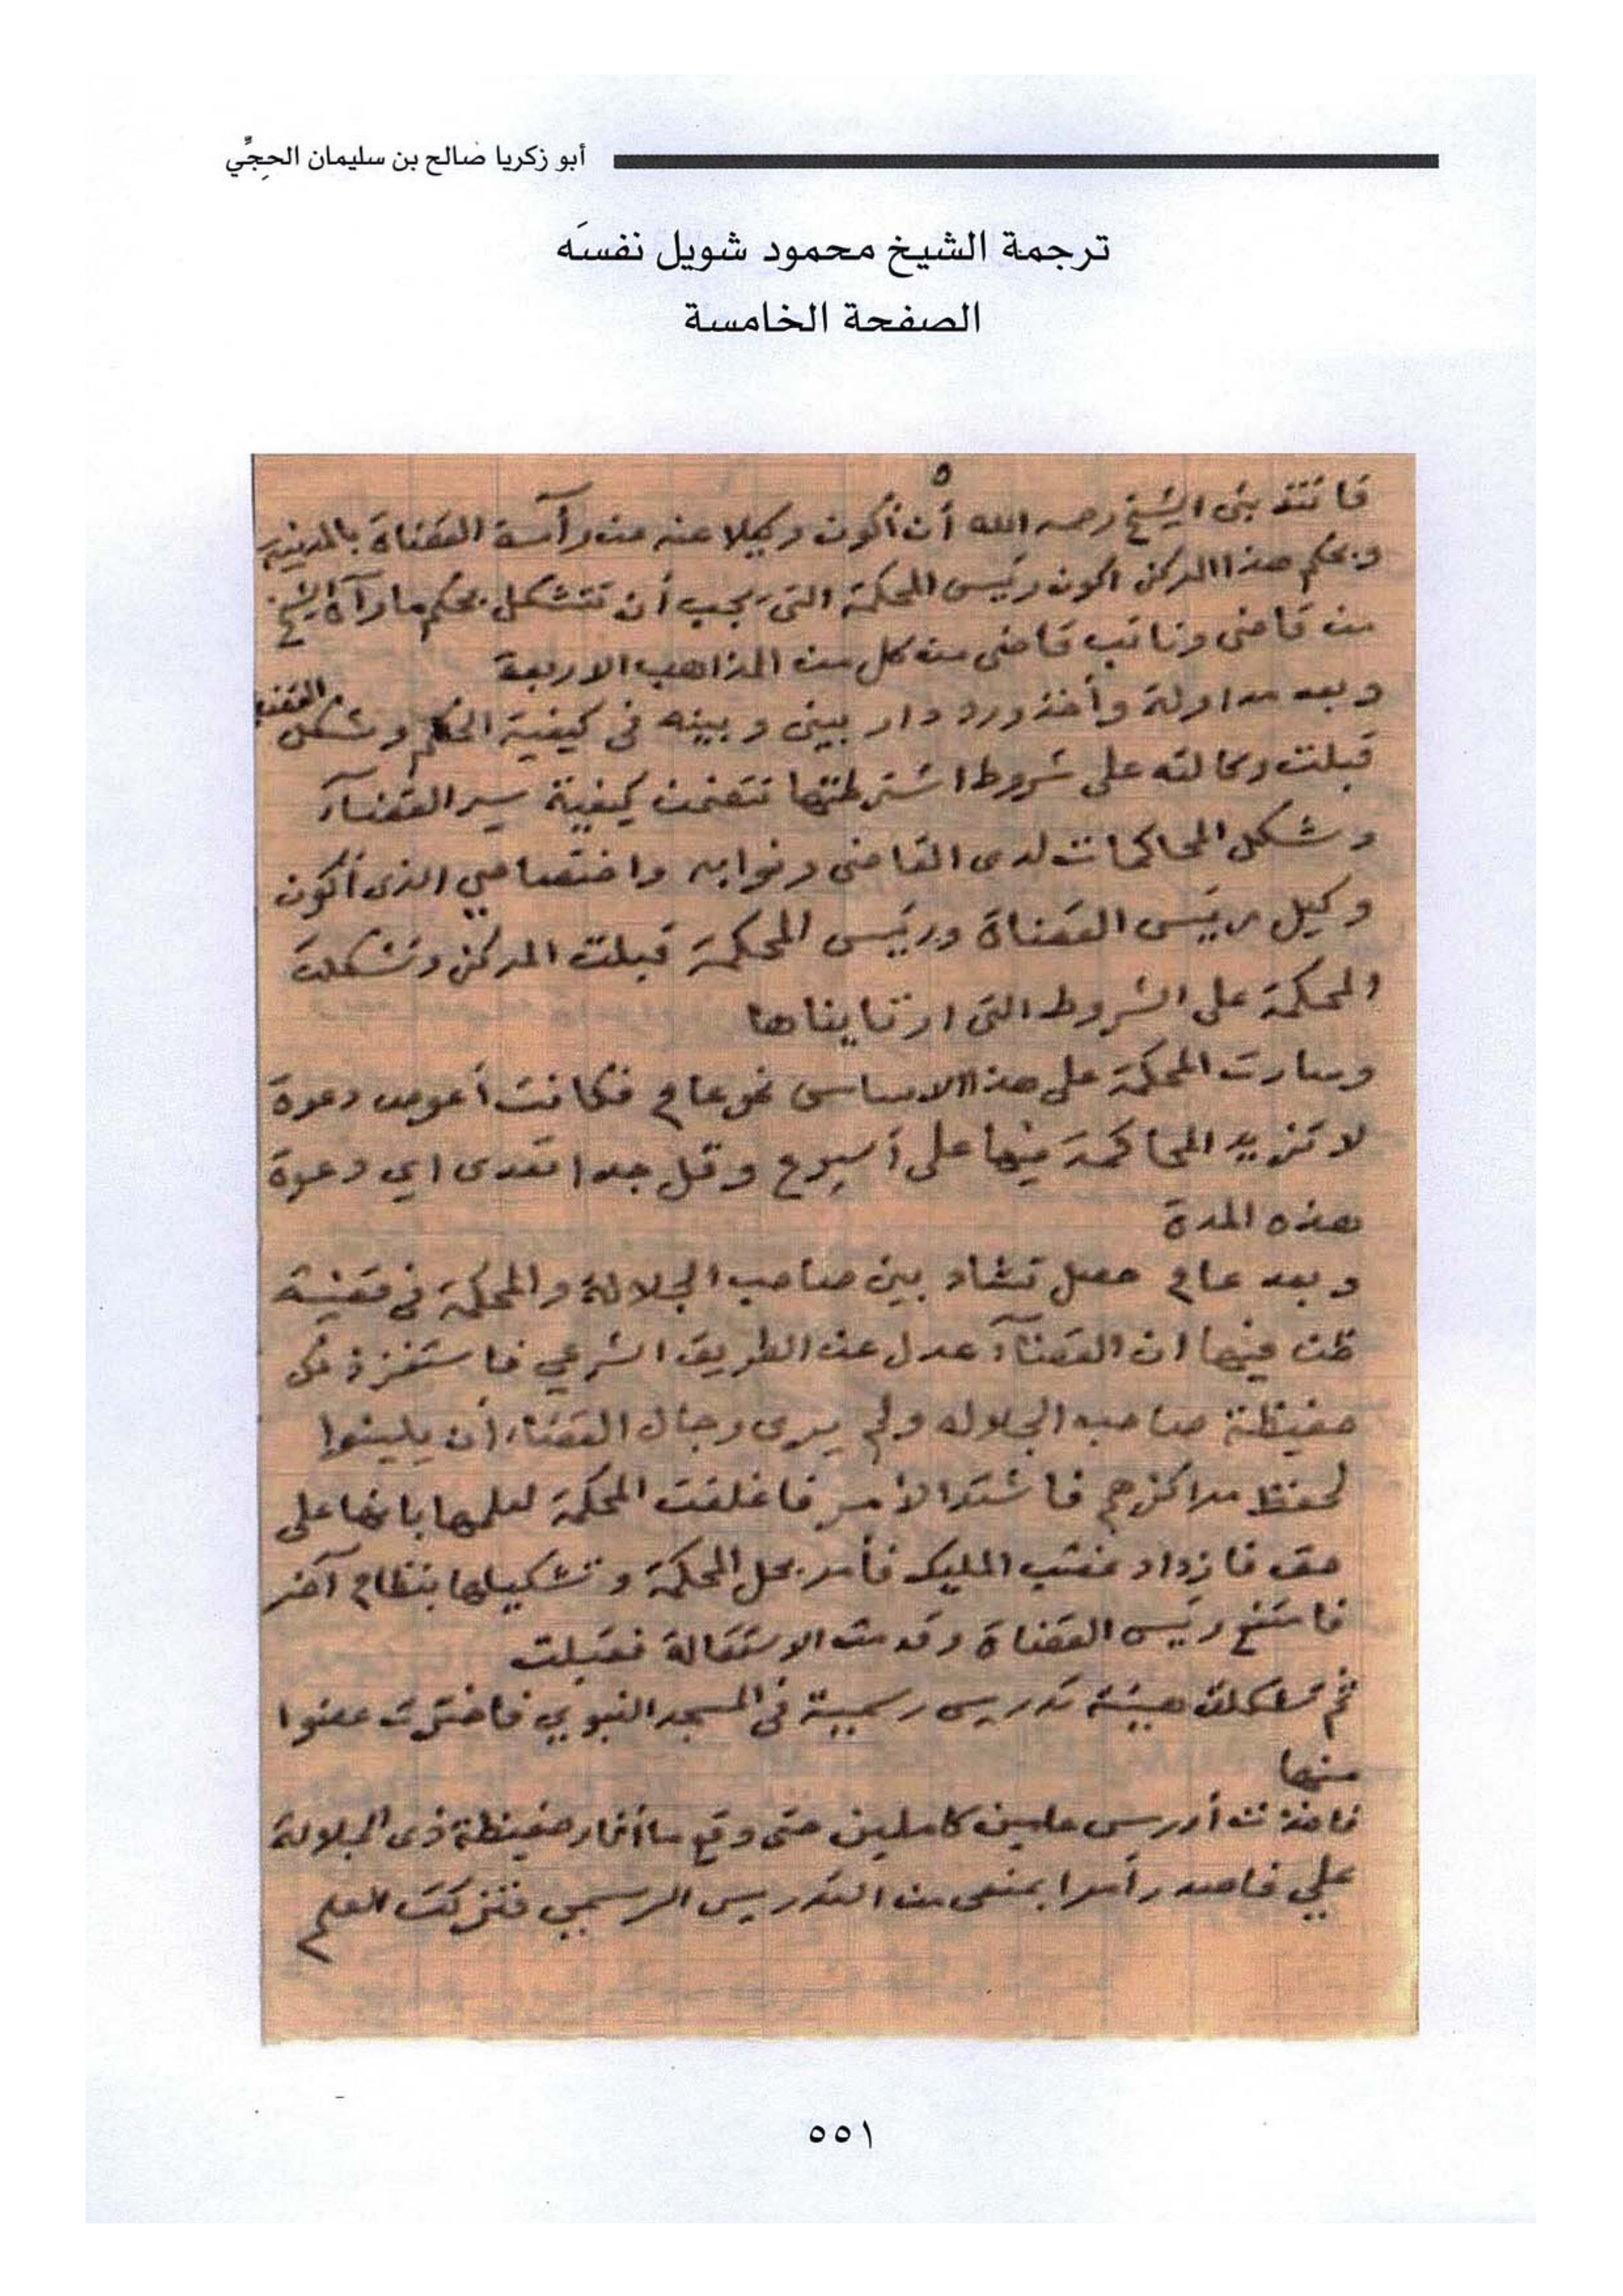 أبو زكريا صالح بن سليمان الحجِّي
ترجمة الشيخ محمود شويل نفسَه
الصفحة الخامسة
٥
فانتدبنى الشيخ رحمه الله أن أكون وكيلا عنه من رآسة القضاة بالمدينة
وبحكم هذا المركز اكون رئيس المحكمة التى يجب أن تتشكل بحكم مارآه الشيخ
من قاضى ونائب قاضى من كل من المذاهب الاربعة
وبعد مداولة وأخذ ورد دار بينى وبينه فى كيفية الحكم وشكل القضاء
قبلت وكالته على شروط اشترطتها تتضمن كيفية سير القضآء
وشكل المحاكمات لدى القاضى ونوابه واختصاصي الذى أكون
وكيل رئيس القضاة ورئيس المحكمة قبلت المركز وتشكلت
المحكمة على الشروط التى ارتايناها
وسارت المحكمة على هذا الاساس نحو عام فكانت أعوص دعوة
لا تزيد المحاكمة فيها على أسبوع وقل جدا تعدى اي دعوة
هذه المدة
وبعد عام حصل تشاد بين صاحب الجلالة والمحكمة فى قضية
ظن فيها ان القضآء عدل عن الطريق الشرعي فاستفز ذلك
حفيظة صاحب الجلاله ولم يرى رجال القضاء أن يلينوا
لحفظ مراكزهم فاشتد الأمر فاغلقت المحكمة لعلمها بانها على
حق فازداد غضب المليك فأمر بحل المحكمة وتشكيلها بنظام آخر
فامتنع رئيس القضاة وقدمت الاستقالة فقبلت
ثم تشكلت هيئة تدريس رسمية فى المسجد النبوي فاخترت عضوا
منها
فاخذت أدرس عامين كاملين حتى وقع ما أثار حفيظة ذى الجلالة
علي فاصدر أمرا بمنعى من التدريس الرسمي فتركت العلم
٥٥١